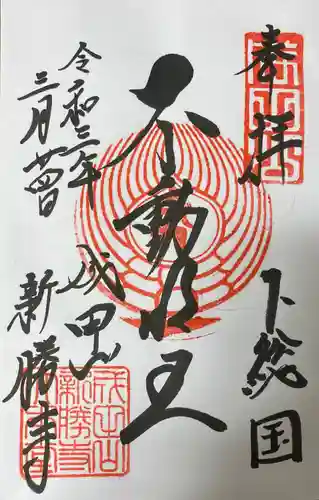 奉拝
下総国
不動明王
令和三年
三月廿四日
成田山
新勝寺
成田山
新勝寺